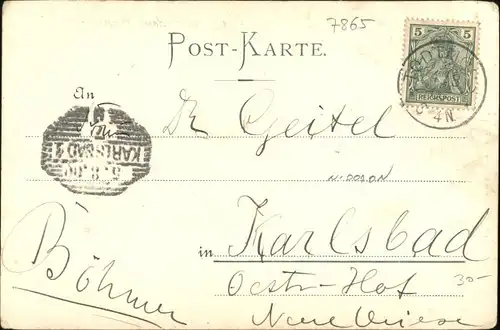 7865
POST-KARTE.
5 5
REICHSPOST
4N.
An
Dr Geitel
KARLSBAD 1
5.8.00
in Karlsbad
Oestr-Hof
30-
Böhmen
Neue Wiese